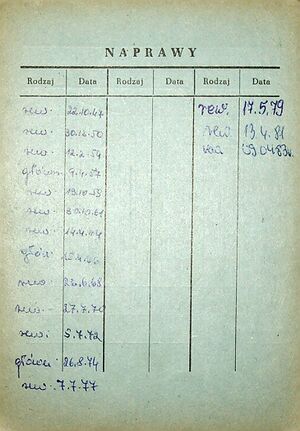 NAPRAWY
Rodzaj Data Rodzaj Data Rodzaj Data
rew. 22.10.47
rew. 30.12.50
rew. 12.2.54
główn. 9.4.57
rew. 19.10.59
rew. 30.10.61
rew. 14.4.64
główn.
rew. 22.6.68
rew. 27.7.70
rew. 5.7.72
główn. 26.8.74
rew. 7.7.77
rew. 17.5.79
rew 13 4.81